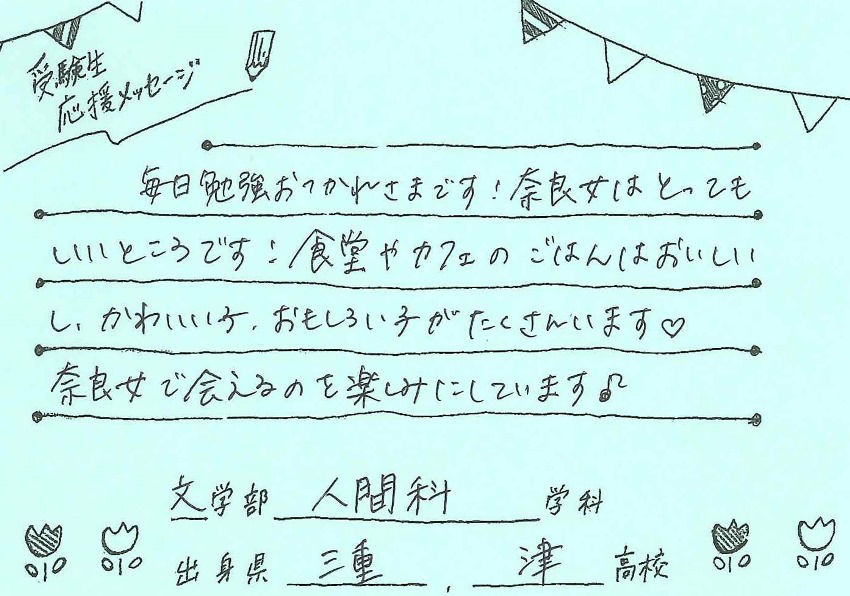 受験生
応援メッセージ
毎日勉強おつかれさまです！奈良女はとっても
いいところです！食堂やカフェのごはんはおいしい
し、かわいい子、おもしろい子がたくさんいます♡
奈良女で会えるのを楽しみにしています♪
文学部 人間科 学科
出身県 三重 、 津 高校